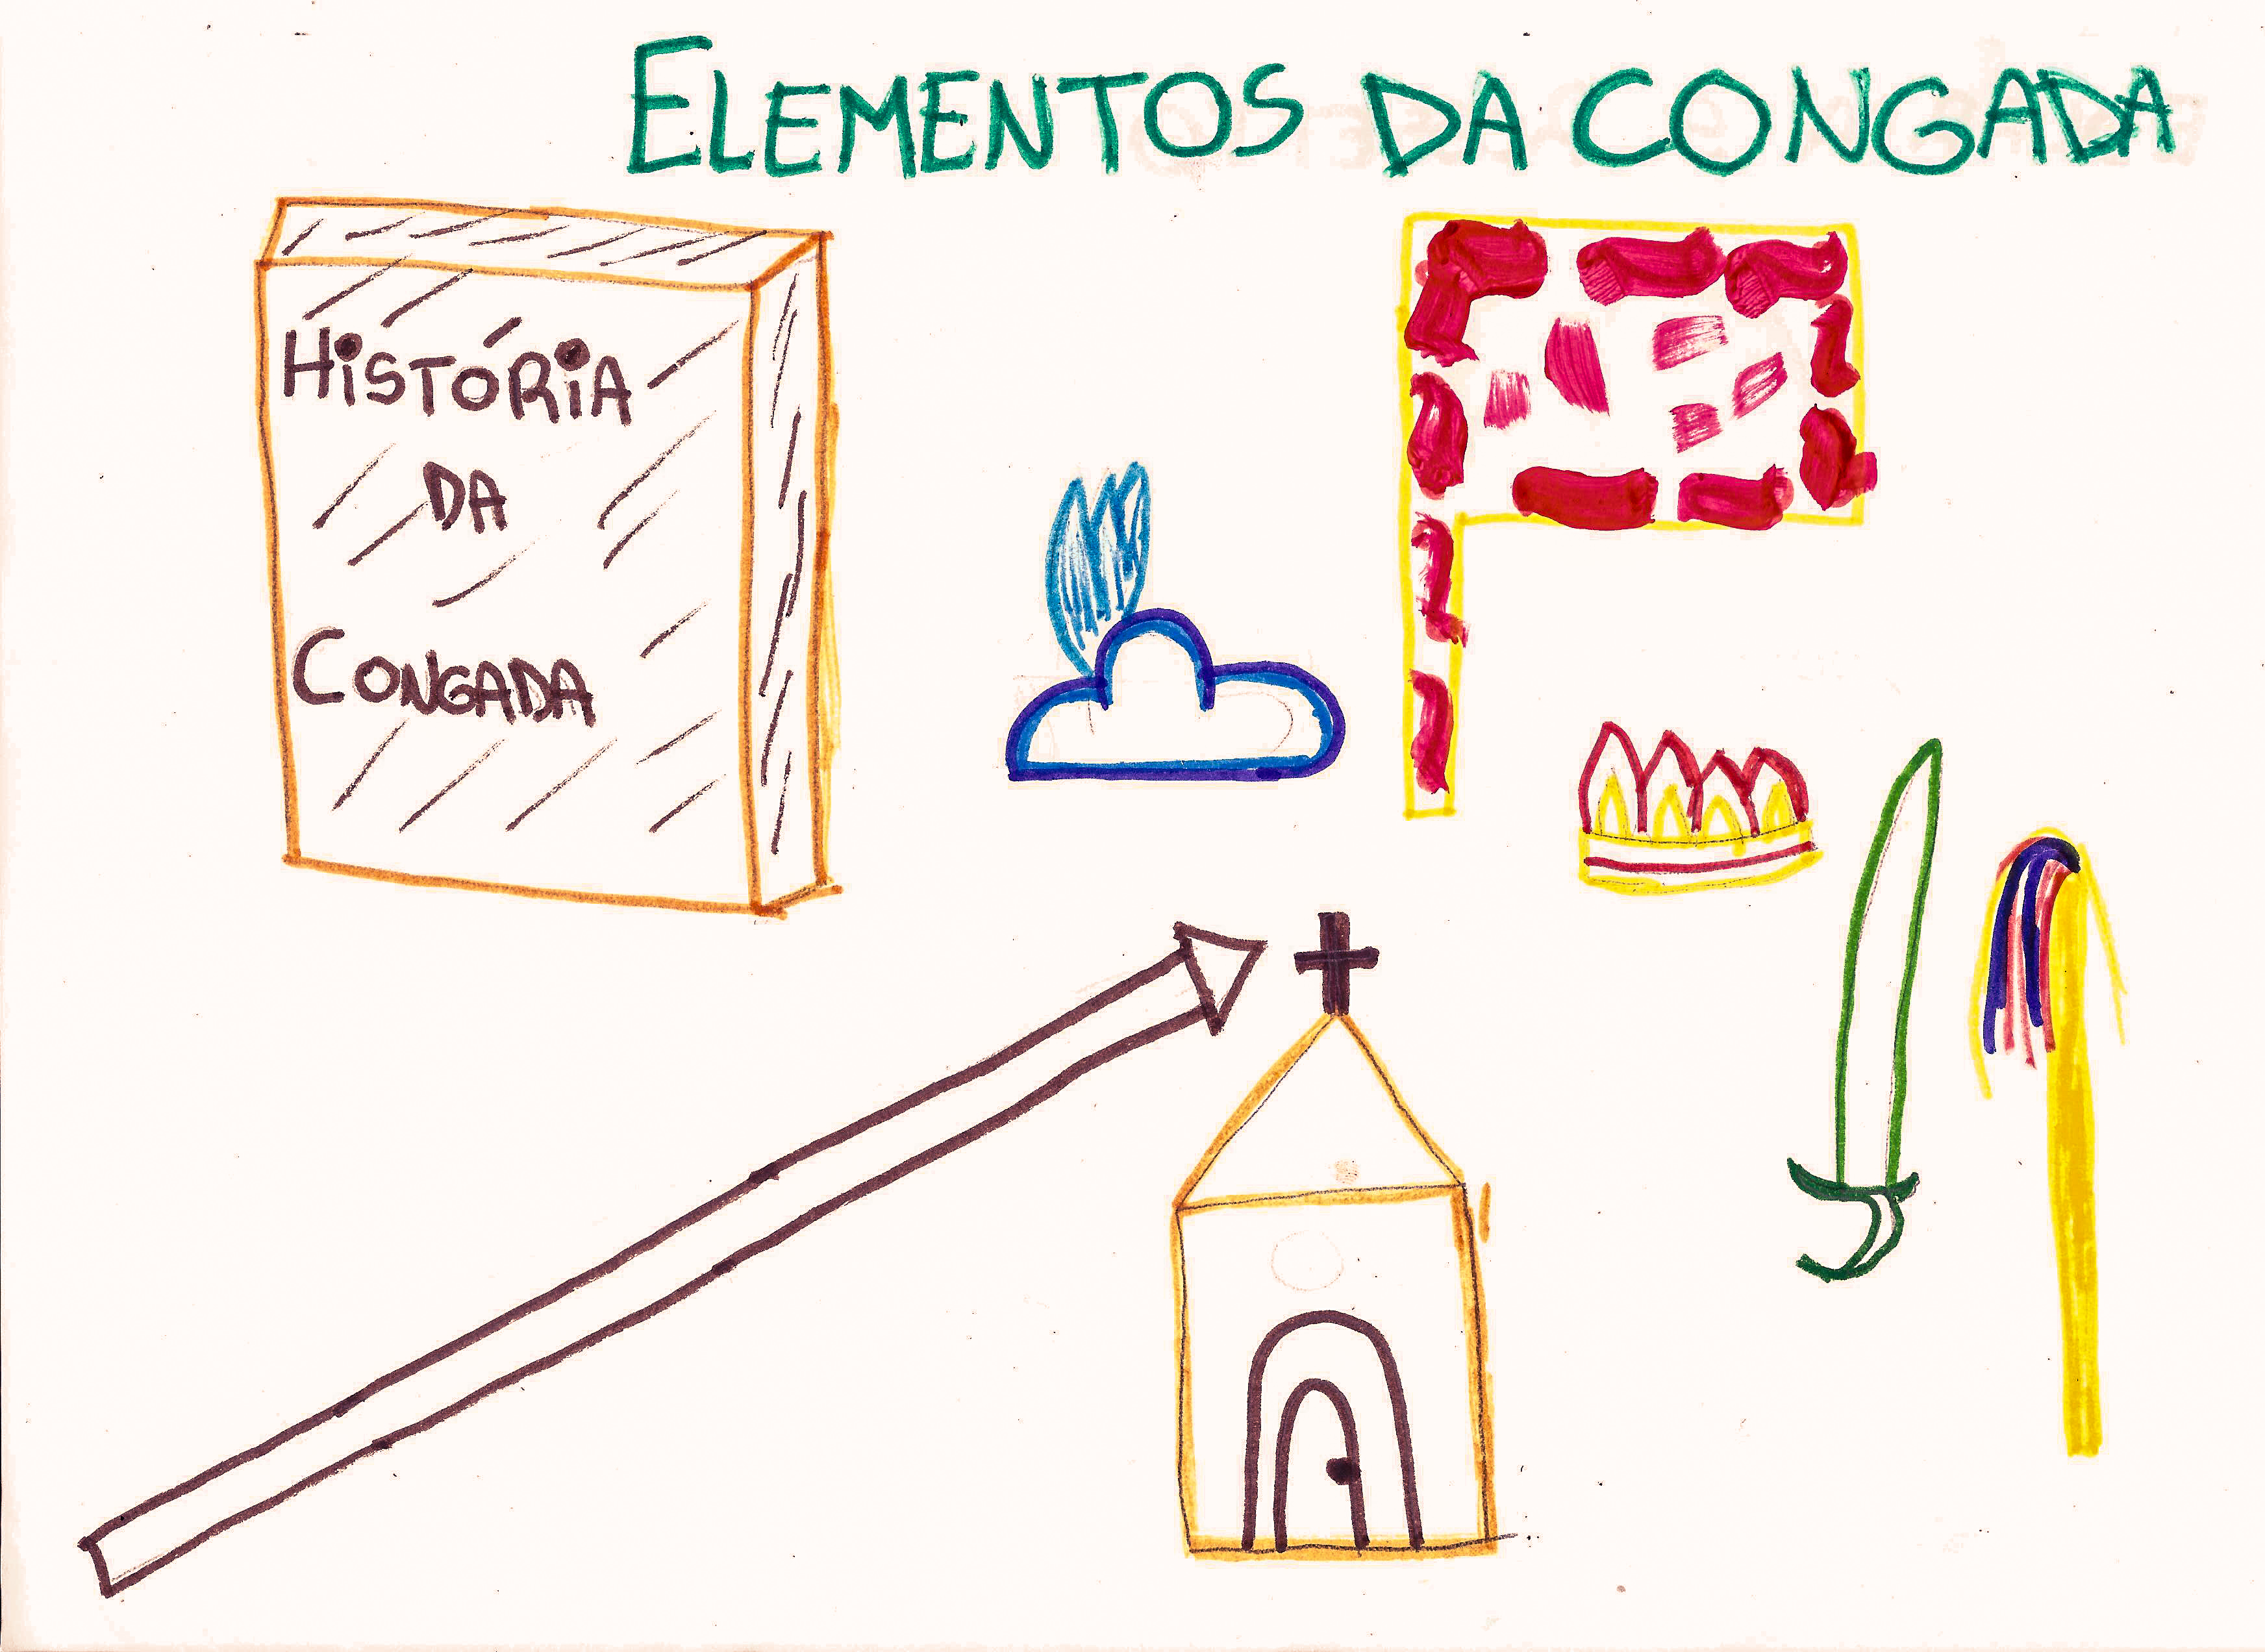 ELEMENTOS DA CONGADA
HiSTÓRiA
DA
CONGADA